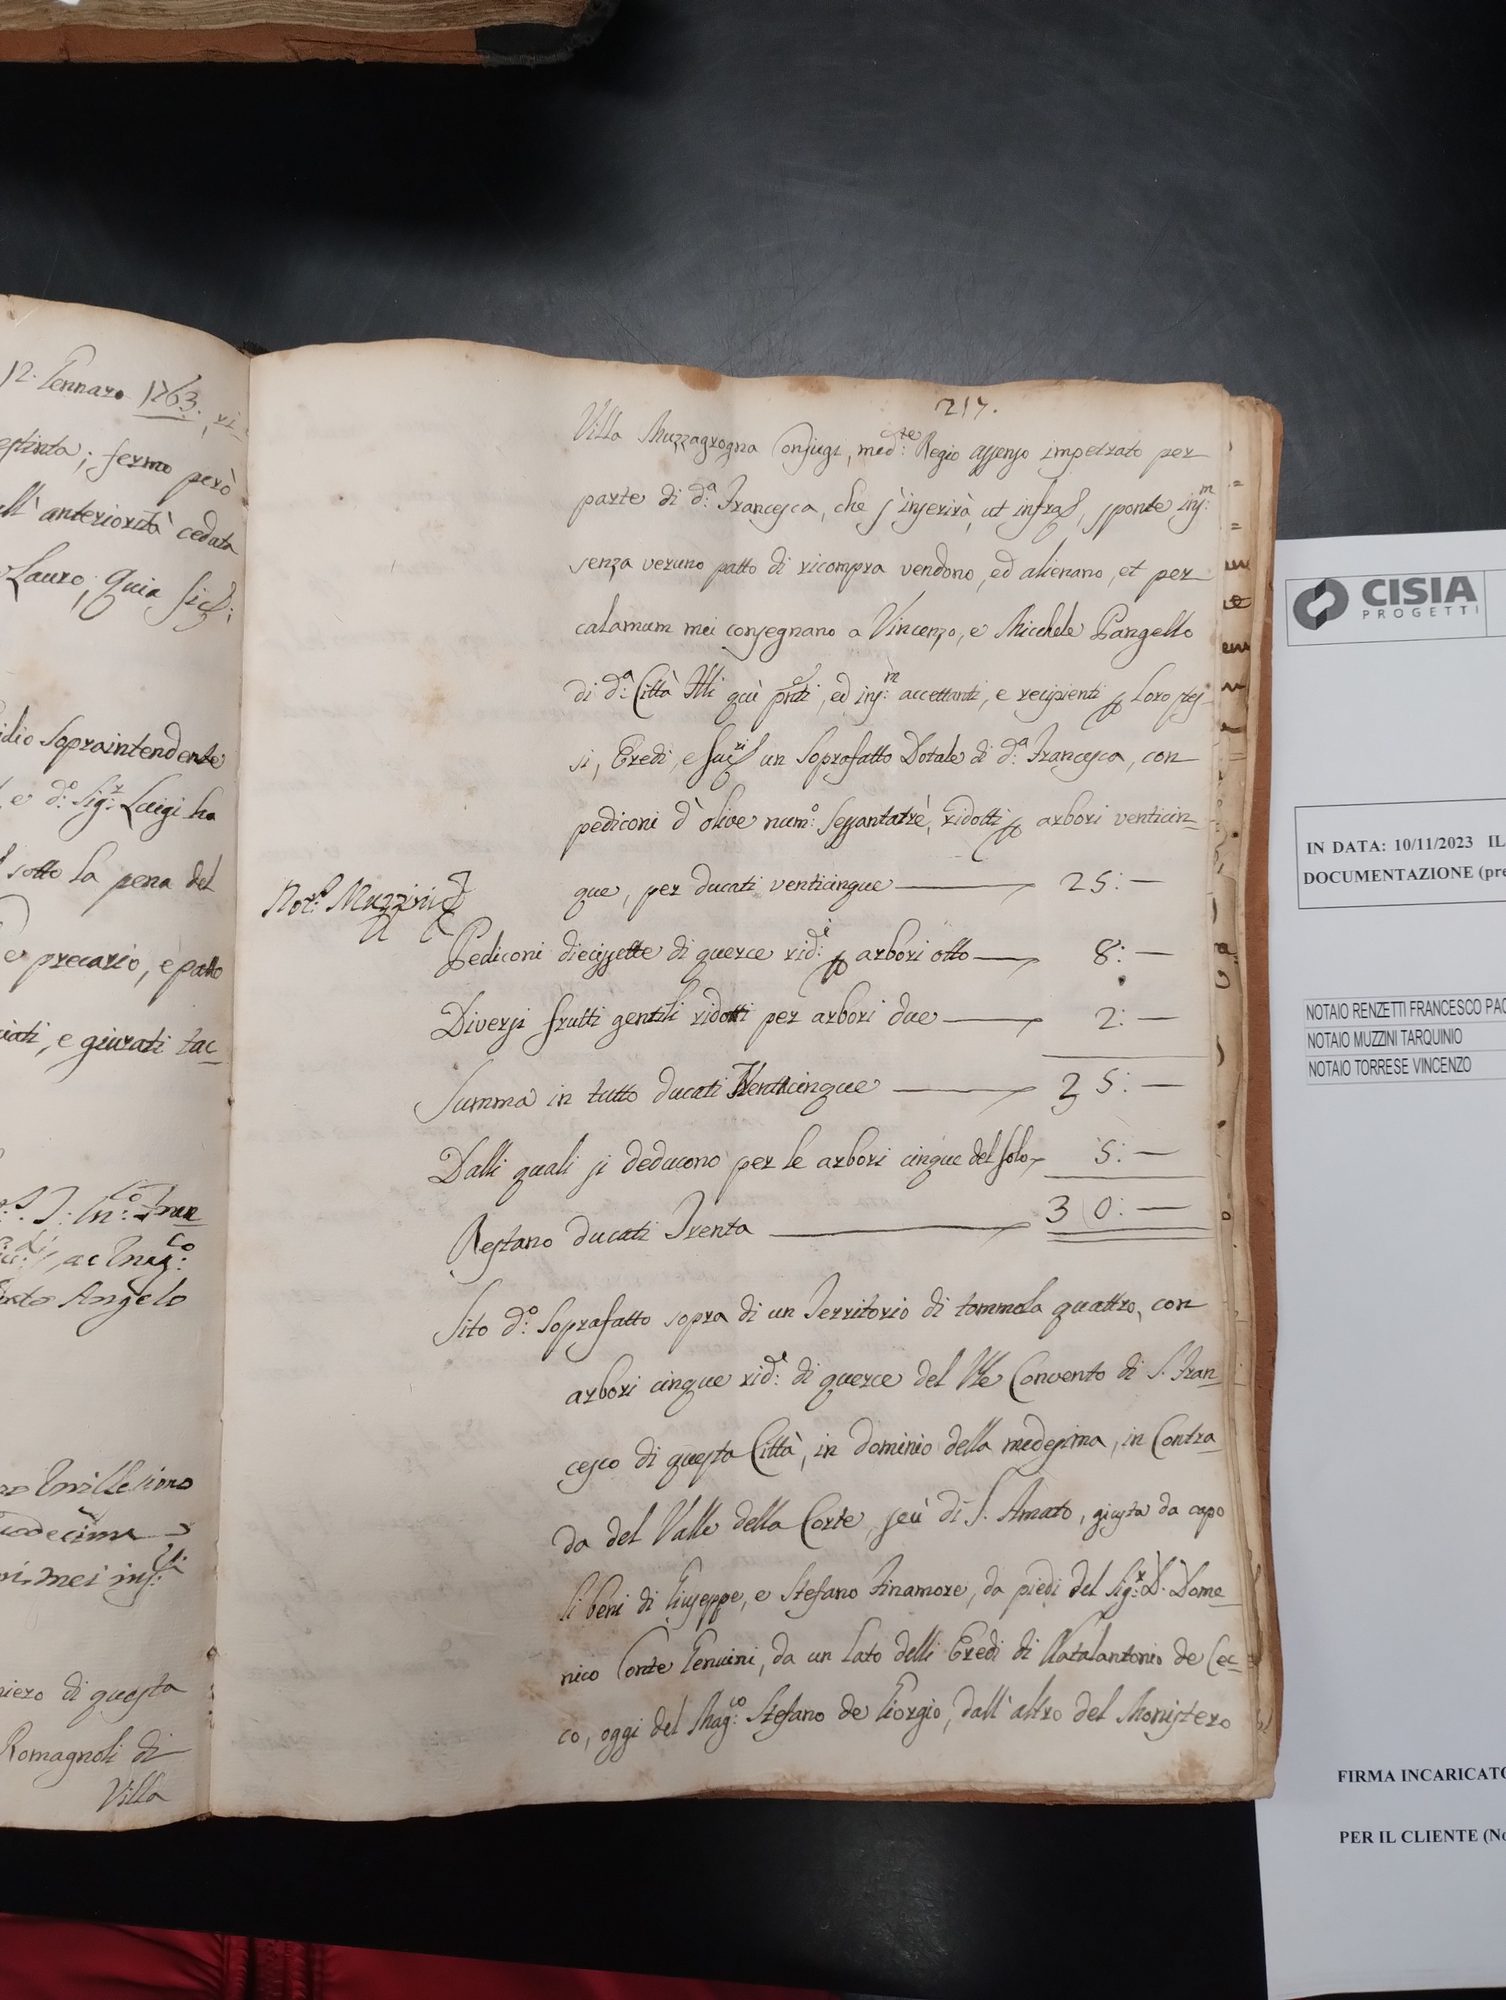 12. Gennaro 1763.
estinta; fermo però
all'anteriorità cedata
Lauro; Quia sic
Sopraintendente
e d.o Sig.r Luigi ha
sotto la pena del
e precario, e patto
e giurati tac-
ac Mag.co
Angelo
millesimo
mei
di questa
Romagnoli di
Villa
217.
Villa Muzzagrogna Conjugi, med.te Regio assenso impetrato per
parte di d.a Francesca, che s'inserirà, ut infra, sponte ins.m
senza veruno patto di ricompra vendono, ed alienano, et per
calamum mei consegnano a Vincenzo, e Micchele Pangello
di d.a Città Ili quì pnti, ed ins.m accettanti, e recipienti p loro stes-
si, Eredi, e Suc.ri un Soprafatto Dotale di d.a Francesca, con
pediconi d'olive num.o Sessantatrè, ridotti p arbori venticin-
que, per ducati venticinque 25: —
Not.r Muzzini
Pediconi diecissette di querce rid.i p arbori otto — 8: —
Diversi frutti gentili ridotti per arbori due — 2: —
Summa in tutto ducati Trentacinque — 35: —
Dalli quali si deducono per le arbori cinque del solo 5: —
Restano ducati Trenta — 30: —
Sito d.o Soprafatto sopra di un Territorio di tommola quattro, con
arbori cinque rid.e di querce del Vble Convento di S. Fran-
cesco di questa Città, in dominio della medesima, in Contra-
da del Valle della Corte, seù di S. Amato, giusta da capo
li beni di Giuseppe, e Stefano Finamore, da piedi del Sig.r D. Dome-
nico Conte Genuini, da un lato delli Eredi di Natalantonio de Cec-
co, oggi del Mag.co Stefano de Giorgio, dall'altro del Monistero
CISIA
PROGETTI
IN DATA: 10/11/2023 IL
DOCUMENTAZIONE (pre
NOTAIO RENZETTI FRANCESCO PAO
NOTAIO MUZZINI TARQUINIO
NOTAIO TORRESE VINCENZO
FIRMA INCARICATO
PER IL CLIENTE (No